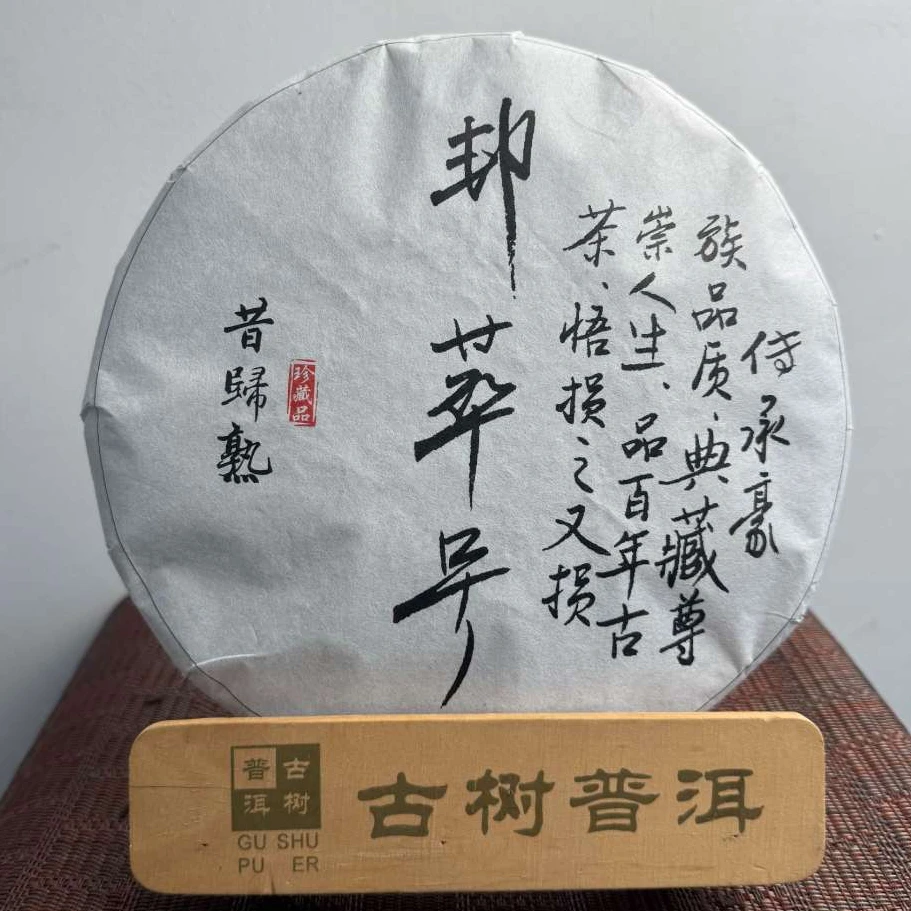 传承豪
族品质、典藏尊
崇人生、品百年古
茶、悟损之又损
邦萃号
昔歸熟
珍藏品
古树
普洱
GU SHU
PU ER
古树普洱